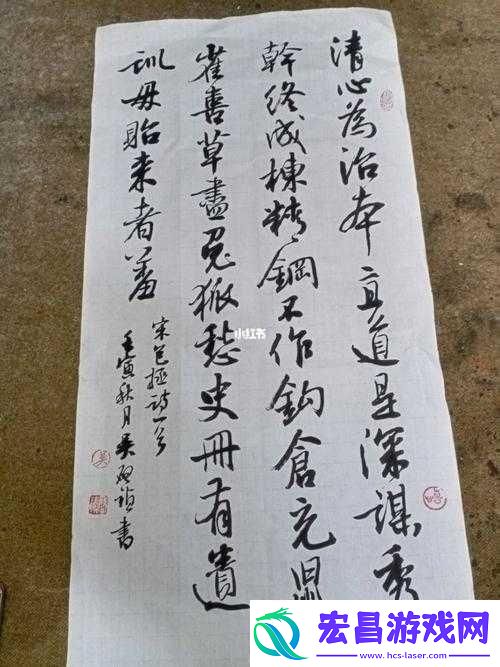 清心為治本直道是深謀秀
幹終成棟精鋼不作鈎倉充鼠
雀喜草盡兔狐愁史冊有遺
訓毋貽来者羞
宋包拯詩一首
壬寅秋月吴書
小红书
宏昌游戏网
www.hcs-laser.com